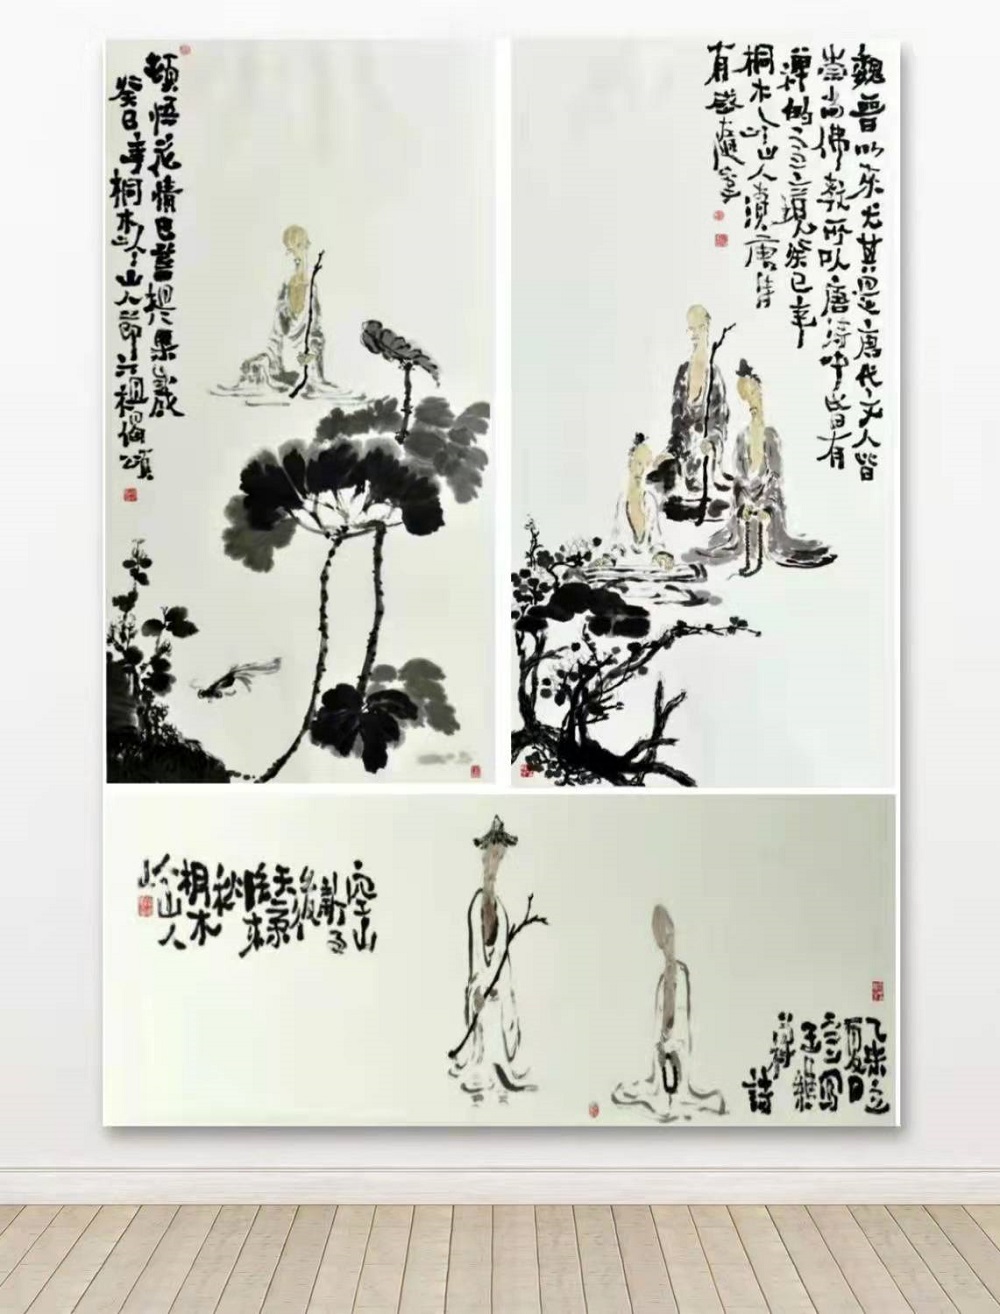 頓悟花情已菩提果成
癸巳年桐木山人節六祖偈頌
魏晉以來尤其是唐代文人皆
崇尚佛教所以唐詩中皆有
禪的
現癸巳年
桐木山人賞唐詩
有感
空山
新雨
後
天氣
晚來
秋
桐木
山人
乙未立
夏日
寫
王維
詩